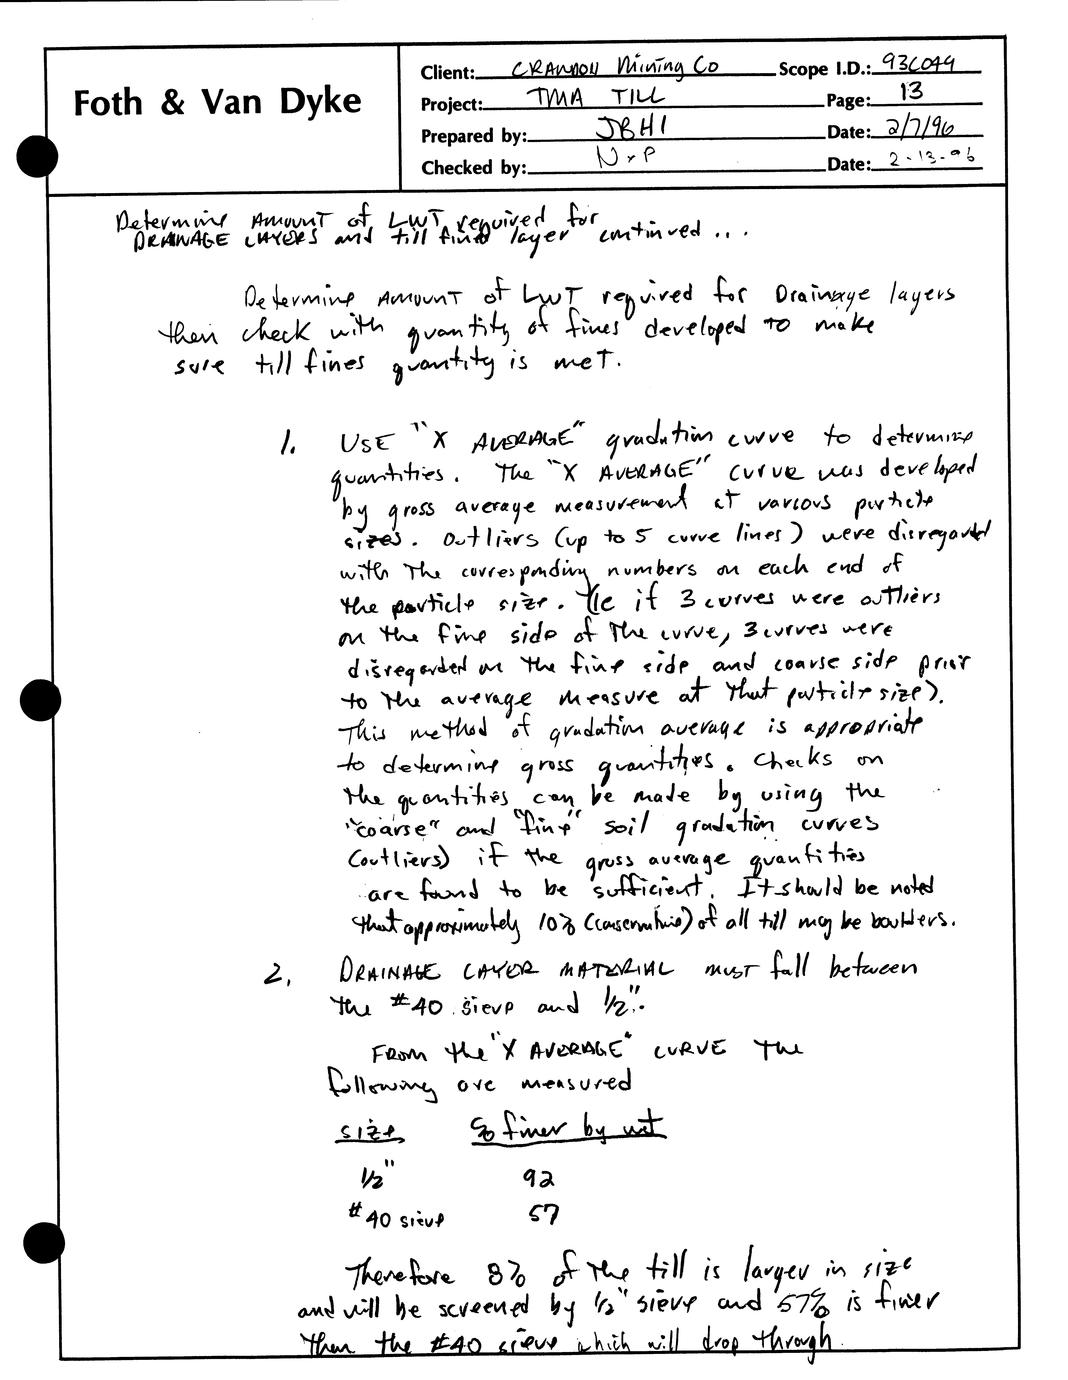 Foth & Van Dyke
Client: CRANDON Mining Co Scope I.D.: 93C049
Project: TMA TILL Page: 13
Prepared by: JBH1 Date: 2/7/96
Checked by: NxP Date: 2-13-96
Determine AMOUNT of LWT required for
DRAINAGE LAYERS and till fines layer continued ...
Determine AMOUNT of LWT required for Drainage layers
then check with quantity of fines developed to make
sure till fines quantity is met.
1. USE "X AVERAGE" gradation curve to determine
quantities. The "X AVERAGE" curve was developed
by gross average measurement at various particle
sizes. Outliers (up to 5 curve lines) were disregarded
with the corresponding numbers on each end of
the particle size. (Ie if 3 curves were outliers
on the fine side of the curve, 3 curves were
disregarded on the fine side and coarse side prior
to the average measure at that particle size).
This method of gradation average is appropriate
to determine gross quantities. Checks on
the quantities can be made by using the
"coarse" and "fine" soil gradation curves
(outliers) if the gross average quantities
are found to be sufficient. It should be noted
that approximately 10% (conservative) of all till may be boulders.
2. DRAINAGE LAYER MATERIAL must fall between
the #40 sieve and 1/2".
FROM the "X AVERAGE" CURVE the
following are measured
size % finer by wt
1/2" 92
#40 sieve 57
Therefore 8% of the till is larger in size
and will be screened by 1/2" sieve and 57% is finer
then the #40 sieve which will drop through.